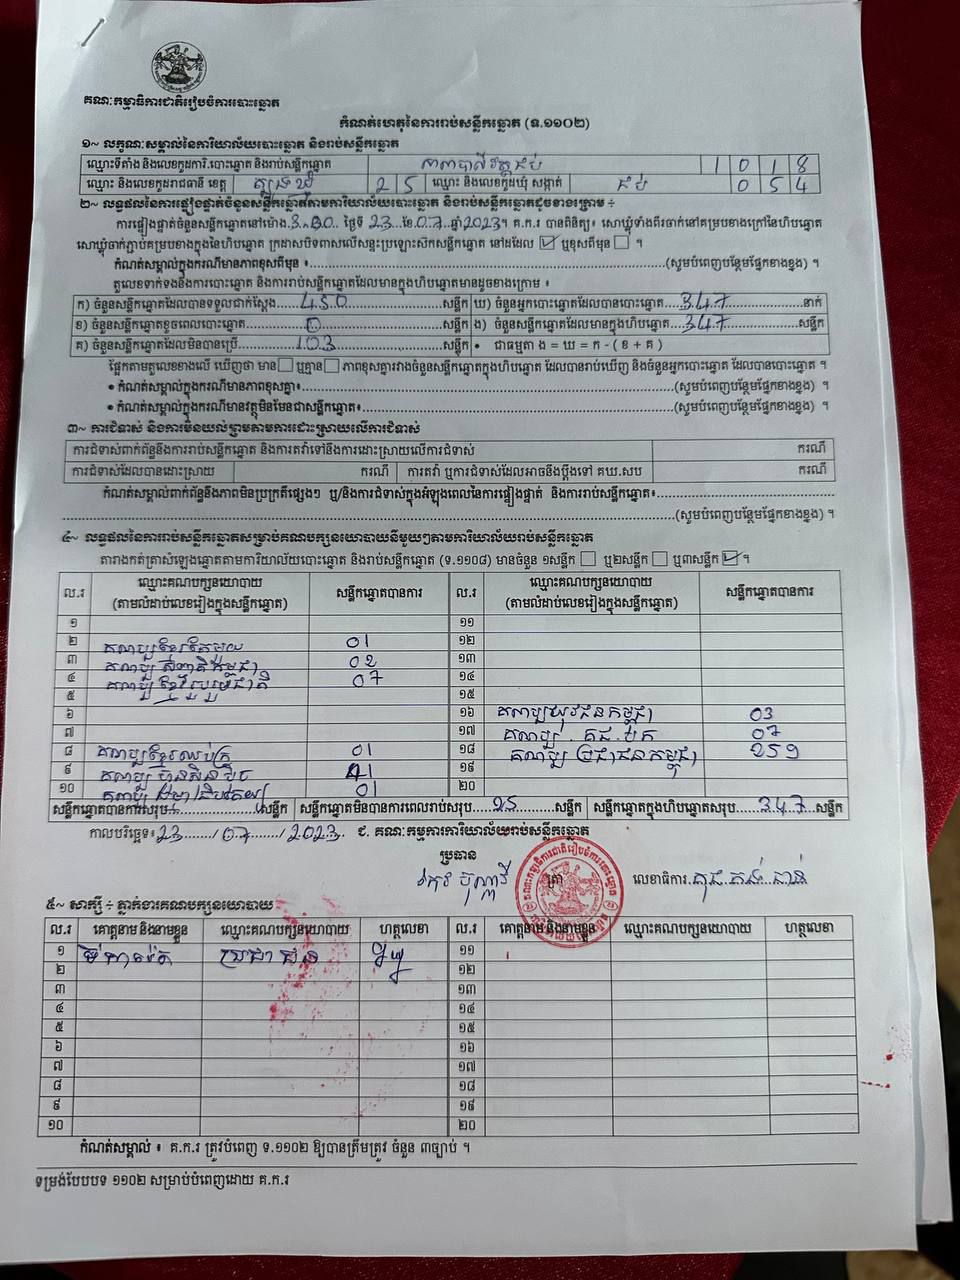 គណៈកម្មាធិការជាតិរៀបចំការបោះឆ្នោត
កំណត់ហេតុនៃការរាប់សន្លឹកឆ្នោត (ទ.១១០២)
១~ លក្ខណៈសម្គាល់នៃការិយាល័យបោះឆ្នោត និងរាប់សន្លឹកឆ្នោត
ឈ្មោះទីតាំង និងលេខកូដការិ.បោះឆ្នោត និងរាប់សន្លឹកឆ្នោត 1 0 1 8
ឈ្មោះ និងលេខកូដរាជធានី ខេត្ត ត្បូងឃ្មុំ 2 5 ឈ្មោះ និងលេខកូដឃុំ សង្កាត់ ជប់ 0 5 4
២~ លទ្ធផលនៃការផ្ទៀងផ្ទាត់ចំនួនសន្លឹកឆ្នោតតាមការិយាល័យបោះឆ្នោត និងរាប់សន្លឹកឆ្នោតដូចខាងក្រោម ÷
ការផ្ទៀងផ្ទាត់ចំនួនសន្លឹកឆ្នោតនៅម៉ោង ថ្ងៃទី 23 ខែ 07 ឆ្នាំ 2023។ គ.ក.រ បានពិនិត្យ៖ សោឃ្លុំទាំងពីរចាក់នៅគម្របខាងក្រៅនៃហិបឆ្នោត
សោឃ្លុំចាក់ភ្ជាប់គម្របខាងក្នុងនៃហិបឆ្នោត ក្រដាសបិទពាសលើសន្ទះប្រឡោះសឹកសន្លឹកឆ្នោត នៅដដែល ឬខុសពីមុន ។
កំណត់សម្គាល់ក្នុងករណីមានភាពខុសពីមុន ៖ (សូមបំពេញបន្ថែមផ្នែកខាងខ្នង) ។
តួលេខទាក់ទងនឹងការបោះឆ្នោត និងការរាប់សន្លឹកឆ្នោតដែលមានក្នុងហិបឆ្នោតមានដូចខាងក្រោម ៖
ក) ចំនួនសន្លឹកឆ្នោតដែលបានទទួលជាក់ស្តែង 450 សន្លឹក ឃ) ចំនួនអ្នកបោះឆ្នោតដែលបានបោះឆ្នោត 347 នាក់
ខ) ចំនួនសន្លឹកឆ្នោតខូចពេលបោះឆ្នោត 0 សន្លឹក ង) ចំនួនសន្លឹកឆ្នោតដែលមានក្នុងហិបឆ្នោត 347 សន្លឹក
គ) ចំនួនសន្លឹកឆ្នោតដែលមិនបានប្រើ 103 សន្លឹក • ជាធម្មតា ង = ឃ = ក - ( ខ + គ )
ផ្អែកតាមតួលេខខាងលើ ឃើញថា មាន ឬគ្មាន ភាពខុសគ្នារវាងចំនួនសន្លឹកឆ្នោតក្នុងហិបឆ្នោត ដែលបានរាប់ឃើញ និងចំនួនអ្នកបោះឆ្នោត ដែលបានបោះឆ្នោត ។
• កំណត់សម្គាល់ក្នុងករណីមានភាពខុសគ្នា៖ (សូមបំពេញបន្ថែមផ្នែកខាងខ្នង) ។
• កំណត់សម្គាល់ក្នុងករណីមានវត្ថុមិនមែនជាសន្លឹកឆ្នោត៖ (សូមបំពេញបន្ថែមផ្នែកខាងខ្នង) ។
៣~ ការជំទាស់ និងការមិនយល់ព្រមតាមការដោះស្រាយលើការជំទាស់
ការជំទាស់ពាក់ព័ន្ធនឹងការរាប់សន្លឹកឆ្នោត និងការតវ៉ាទៅនឹងការដោះស្រាយលើការជំទាស់ ករណី
ការជំទាស់ដែលបានដោះស្រាយ ករណី ការតវ៉ា ឬការជំទាស់ដែលអាចនឹងប្តឹងទៅ គឃ.សប ករណី
កំណត់សម្គាល់ពាក់ព័ន្ធនឹងភាពមិនប្រក្រតីផ្សេងៗ ឬ/និងការជំទាស់ក្នុងអំឡុងពេលនៃការផ្ទៀងផ្ទាត់ និងការរាប់សន្លឹកឆ្នោត៖
(សូមបំពេញបន្ថែមផ្នែកខាងខ្នង) ។
៤~ លទ្ធផលនៃការរាប់សន្លឹកឆ្នោតសម្រាប់គណបក្សនយោបាយនីមួយៗតាមការិយាល័យរាប់សន្លឹកឆ្នោត
តារាងកត់ត្រាសំឡេងឆ្នោតតាមការិយាល័យបោះឆ្នោត និងរាប់សន្លឹកឆ្នោត (ទ.១១០៨) មានចំនួន ១សន្លឹក ឬ២សន្លឹក ឬ៣សន្លឹក ។
ល.រ ឈ្មោះគណបក្សនយោបាយ (តាមលំដាប់លេខរៀងក្នុងសន្លឹកឆ្នោត) សន្លឹកឆ្នោតបានការ ល.រ ឈ្មោះគណបក្សនយោបាយ (តាមលំដាប់លេខរៀងក្នុងសន្លឹកឆ្នោត) សន្លឹកឆ្នោតបានការ
១ ១១
២ គណបក្សខ្មែរតែមួយ 01 ១២
៣ 02 ១៣
៤ 07 ១៤
៥ ១៥
៦ ១៦ គណបក្សយុវជនកម្ពុជា 03
៧ ១៧ 07
៨ គណបក្សខ្មែរឈប់ក្រ 01 ១៨ គណបក្ស ប្រជាជនកម្ពុជា
៩ ១៩
១០ 01 ២០
សន្លឹកឆ្នោតបានការសរុប សន្លឹក សន្លឹកឆ្នោតមិនបានការពេលរាប់សរុប 25 សន្លឹក សន្លឹកឆ្នោតក្នុងហិបឆ្នោតសរុប 347 សន្លឹក
កាលបរិច្ឆេទ៖ 23 / 07 / 2023. ជ. គណៈកម្មការការិយាល័យរាប់សន្លឹកឆ្នោត
ប្រធាន ត្រា លេខាធិការ
៥~ សាក្សី ÷ ភ្នាក់ងារគណបក្សនយោបាយ
ល.រ គោត្តនាម និងនាមខ្លួន ឈ្មោះគណបក្សនយោបាយ ហត្ថលេខា ល.រ គោត្តនាម និងនាមខ្លួន ឈ្មោះគណបក្សនយោបាយ ហត្ថលេខា
១ ប្រជាជន ១១
២ ១២
៣ ១៣
៤ ១៤
៥ ១៥
៦ ១៦
៧ ១៧
៨ ១៨
៩ ១៩
១០ ២០
កំណត់សម្គាល់ ៖ គ.ក.រ ត្រូវបំពេញ ទ.១១០២ ឱ្យបានត្រឹមត្រូវ ចំនួន ៣ច្បាប់ ។
ទម្រង់បែបបទ ១១០២ សម្រាប់បំពេញដោយ គ.ក.រ